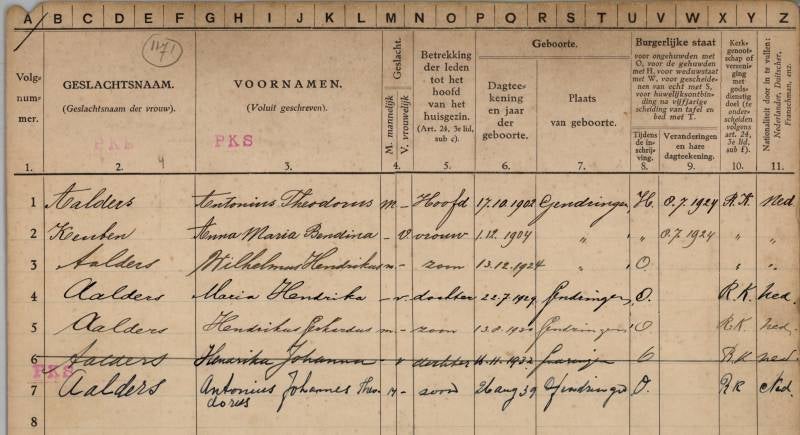 A B C D E F G H I J K L M N O P Q R S T U V W X Y Z
1171
Volgnummer.
GESLACHTSNAAM.
(Geslachtsnaam der vrouw).
PKS
VOORNAMEN.
(Voluit geschreven).
PKS
Geslacht.
M. mannelijk
V. vrouwelijk
Betrekking
der leden
tot het
hoofd
van het
huisgezin.
(Art. 24, 3e lid,
sub c).
Geboorte.
Dagteekening
en jaar
der
geboorte.
Plaats
van geboorte.
Burgerlijke staat
voor ongehuwden met
O, voor de gehuwden
met H, voor weduwstaat
met W, voor gescheidenen
van echt met S,
voor huwelijksontbinding
na vijfjarige
scheiding van tafel en
bed met T.
Tijdens
de inschrijving.
Veranderingen
en hare
dagteekening.
Kerkgenootschap
of vereeniging
met
godsdienstig
doel (te onderscheiden
volgens
art. 24,
3e lid,
sub f).
Nationaliteit door in te vullen:
Nederlander, Duitscher,
Franschman, enz.
1. 2. 3. 4. 5. 6. 7. 8. 9. 10. 11.
1 Aalders Antonius Theodorus m - Hoofd 17.10.1902 Gendringen H. 0.7.1924 R.K. ned
2 Keuben Anna Maria Bendina - v vrouw 1.12.1904 " " 0.7.1924 " "
3 Aalders Wilhelmus Hendrikus m - zoon 13.12.1924 " O. " "
4 Aalders Maria Hendrika - v dochter 22.7.1929 Gendringen O. R.K. ned.
5 Aalders Hendrikus Gerhardus m - zoon Gendringen O R.K. ned.
6 Aalders Hendrika Johanna - v dochter 11.11.1932 R.K. ned.
PKS
7 Aalders Antonius Johannes Theodorus - zoon 26 aug 39 Gendringen O. RK Ned.
8